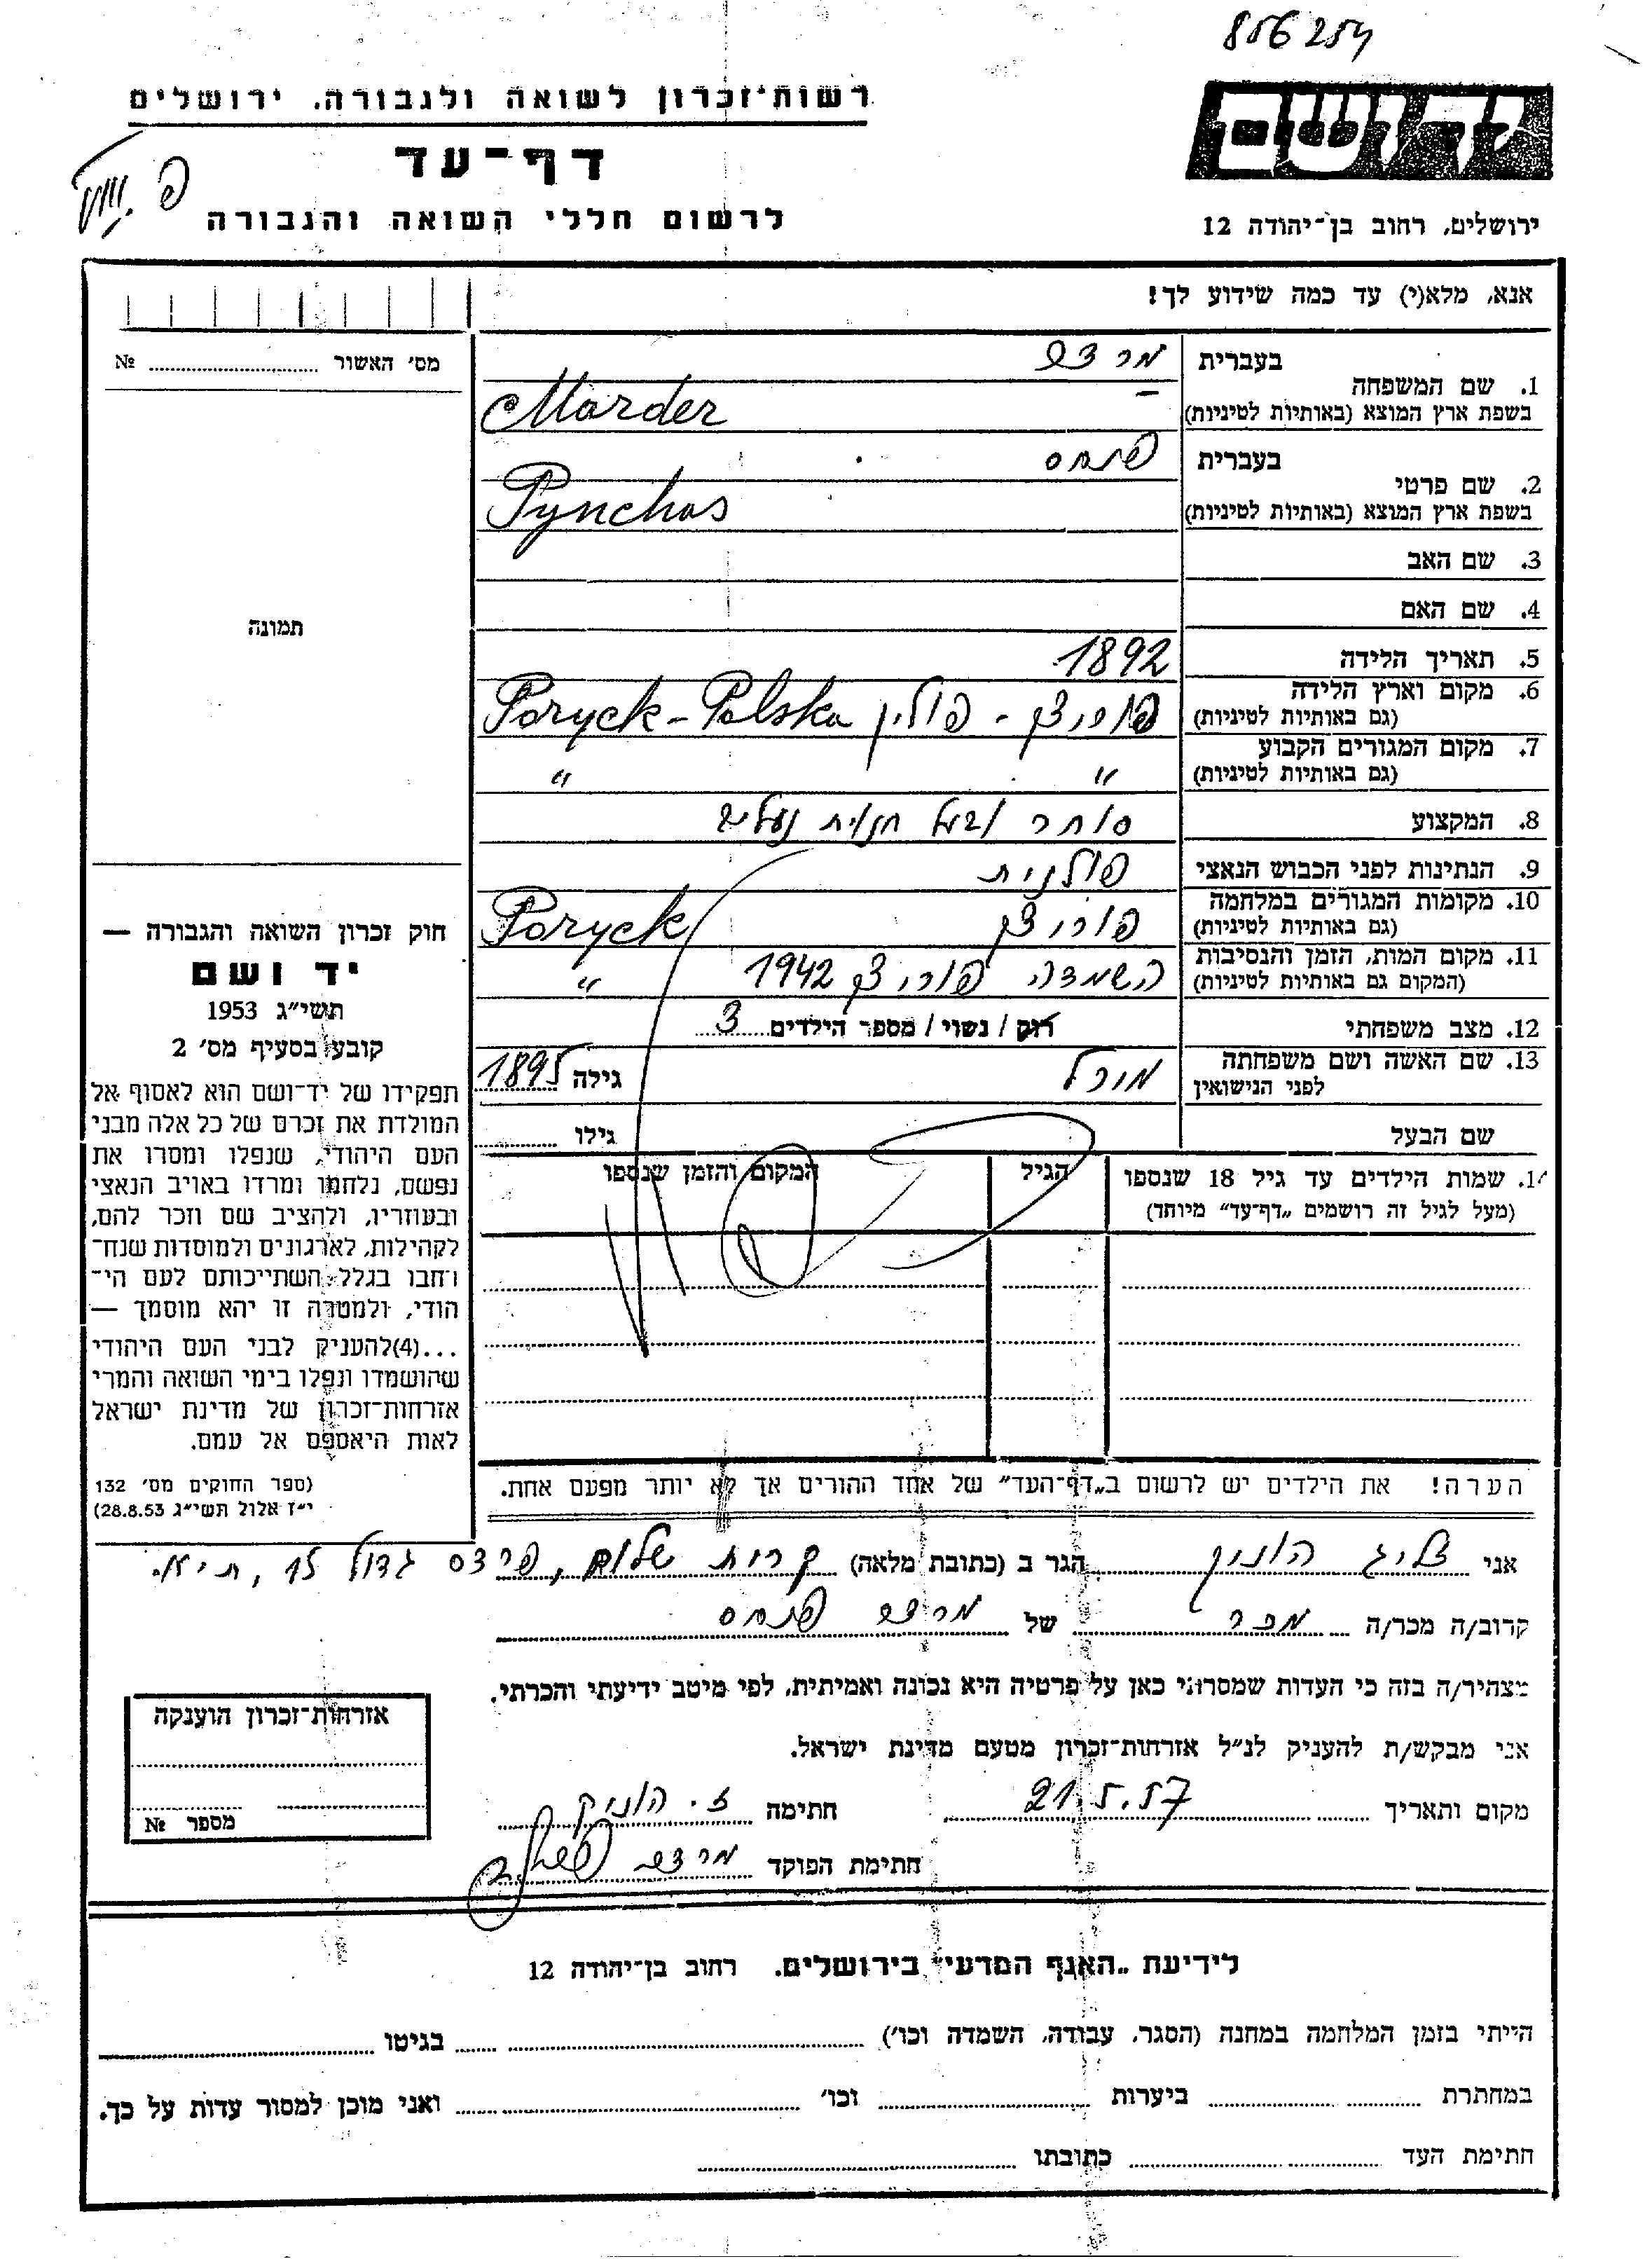 856254
רשות־זכרון לשואה ולגבורה, ירושלים
יד ושם
דף־עד
לרשום חללי השואה והגבורה
ירושלים, רחוב בן־יהודה 12
אנא, מלא(י) עד כמה שידוע לך!
מס׳ האשור № 
1. שם המשפחה
בעברית מרדר
בשפת ארץ המוצא (באותיות לטיניות) Marder
2. שם פרטי
בעברית פנחס
בשפת ארץ המוצא (באותיות לטיניות) Pynchas
3. שם האב
4. שם האם
תמונה
5. תאריך הלידה 1892
6. מקום וארץ הלידה
(גם באותיות לטיניות) פוריצק - פולין Poryck - Polska
7. מקום המגורים הקבוע
(גם באותיות לטיניות) " "
8. המקצוע סוחר ובעל חנות נעלים
9. הנתינות לפני הכבוש הנאצי פולנית
10. מקומות המגורים במלחמה
(גם באותיות לטיניות) פוריצק Poryck
11. מקום המות, הזמן והנסיבות
(המקום גם באותיות לטיניות) השמדה פוריצק 1942 "
12. מצב משפחתי רוק / נשוי / מספר הילדים 3
13. שם האשה ושם משפחתה
לפני הנישואין גילה 1895
שם הבעל גילו
14. שמות הילדים עד גיל 18 שנספו הגיל המקום והזמן שנספו
(מעל לגיל זה רושמים „דף־עד״ מיוחד)
חוק זכרון השואה והגבורה —
יד ושם
תשי״ג 1953
קובע בסעיף מס׳ 2
תפקידו של יד־ושם הוא לאסוף אל
המולדת את זכרם של כל אלה מבני
העם היהודי, שנפלו ומסרו את
נפשם, נלחמו ומרדו באויב הנאצי
ובעוזריו, ולהציב שם וזכר להם,
לקהילות, לארגונים ולמוסדות שנח־
רבו בגלל השתייכותם לעם הי־
הודי, ולמטרה זו יהא מוסמך —
...(4)להעניק לבני העם היהודי
שהושמדו ונפלו בימי השואה והמרי
אזרחות־זכרון של מדינת ישראל
לאות היאספם אל עמם.
(ספר החוקים מס׳ 132
י״ז אלול תשי״ג 28.8.53)
הערה! את הילדים יש לרשום ב„דף־העד״ של אחד ההורים אך לא יותר מפעם אחת.
אני זליג הוניק הגר ב (כתובת מלאה) קרית שלום, פרדס גדול 15, ת"א.
קרוב/ה מכר/ה מכר של מרדר פנחס
מצהיר/ה בזה כי העדות שמסרתי כאן על פרטיה היא נכונה ואמיתית, לפי מיטב ידיעתי והכרתי.
אני מבקש/ת להעניק לנ״ל אזרחות־זכרון מטעם מדינת ישראל.
מקום ותאריך 21.5.57 חתימה ז. הוניק
חתימת הפוקד מרדר
אזרחות־זכרון הוענקה
מספר №
לידיעת „האגף המדעי״ בירושלים. רחוב בן־יהודה 12
הייתי בזמן המלחמה במחנה (הסגר, עבודה, השמדה וכו׳) בגיטו
במחתרת ביערות וכו׳ ואני מוכן למסור עדות על כך.
חתימת העד כתובתו